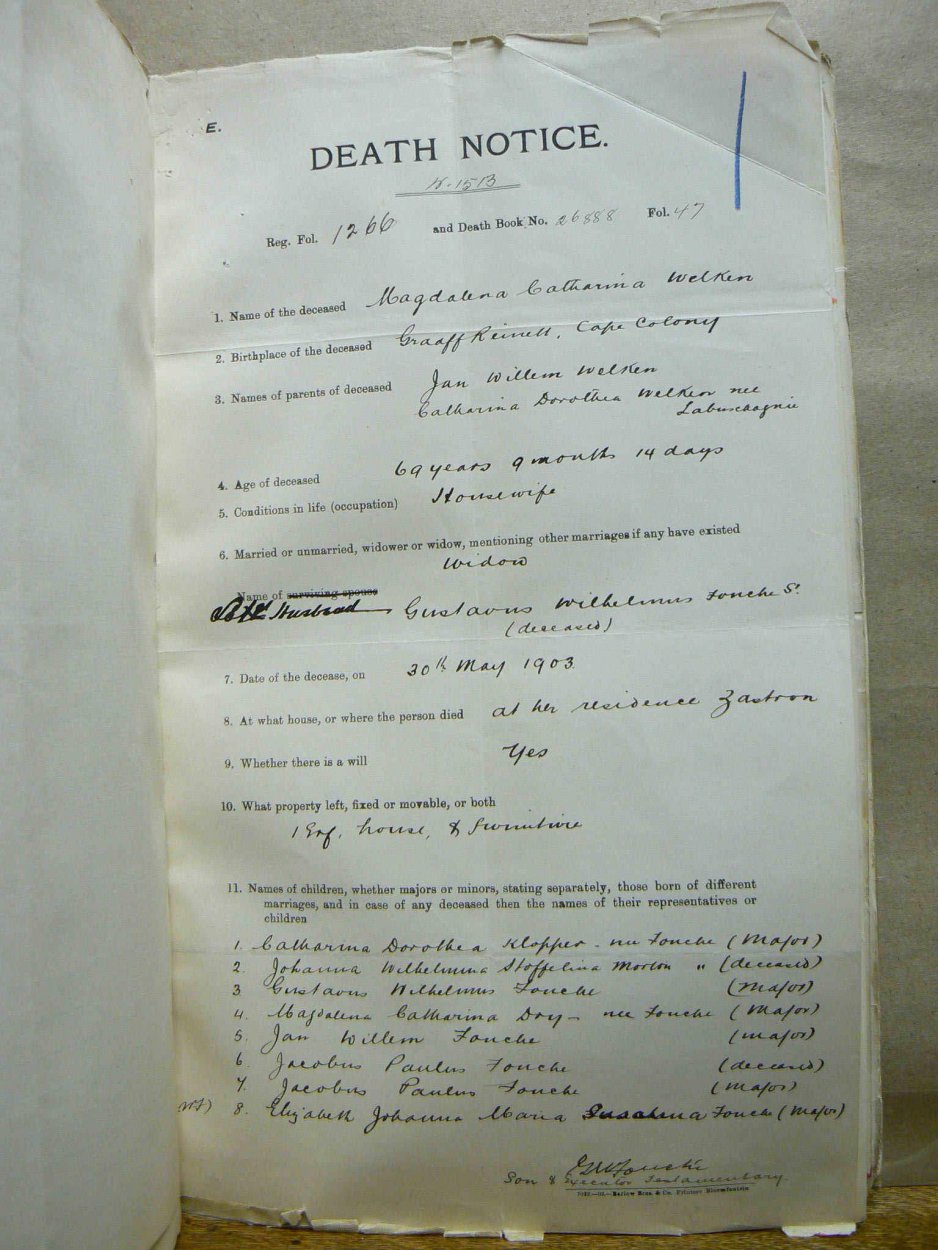 E.
DEATH NOTICE.
W. 1513
Reg. Fol. 1266 and Death Book No. 26888 Fol. 47
1. Name of the deceased Magdalena Catharina Welken
2. Birthplace of the deceased Graaff Reinett, Cape Colony
3. Names of parents of deceased Jan Willem Welken
Catharina Dorothea Welken nee
Labuschagnie
4. Age of deceased 69 years 9 months 14 days
5. Conditions in life (occupation) Housewife
6. Married or unmarried, widower or widow, mentioning other marriages if any have existed
Widow
Name of surviving spouse
Husband Gustavus Wilhelmus Fouche Sr.
(deceased)
7. Date of the decease, on 30th May 1903
8. At what house, or where the person died at her residence Zastron
9. Whether there is a will Yes
10. What property left, fixed or movable, or both
1 Erf, house, & Furniture
11. Names of children, whether majors or minors, stating separately, those born of different
marriages, and in case of any deceased then the names of their representatives or
children
1. Catharina Dorothea Klopper - nee Fouche (Major)
2. Johanna Wilhelmina Stoffelina Morton " (deceased)
3 Gustavus Wilhelmus Fouche (Major)
4. Magdalena Catharina Dry - nee Fouche (Major)
5. Jan Willem Fouche (major)
6. Jacobus Paulus Fouche (deceased)
7. Jacobus Paulus Fouche (major)
8. Elizabeth Johanna Maria Fouche (Major)
GWFouche
Son & Executor Testamentary
Barlow Bros. & Co. Printers Bloemfontein